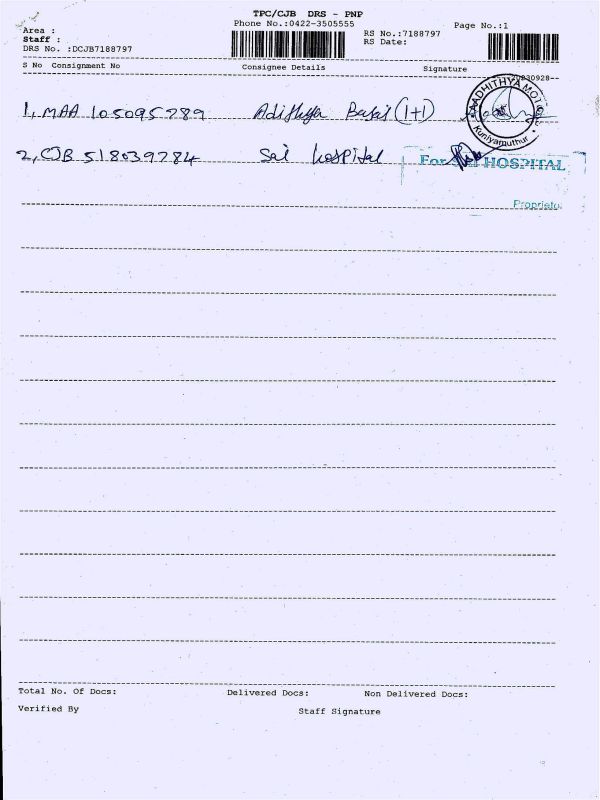 TPC/CJB DRS - PNP
Phone No.:0422-3505555
Page No.:1
Area :
Staff :
DRS No. :DCJB7188797
RS No.:7188797
RS Date:
S No Consignment No Consignee Details Signature
20230928
1, MAA 105095789 Adithya Bajaj (1+1)
AADHITHYA MOTO
Kuniyamuthur
2, CJB 518039784 Sai hospital
For SAI HOSPITAL
Proprieto
Total No. Of Docs: Delivered Docs: Non Delivered Docs:
Verified By Staff Signature